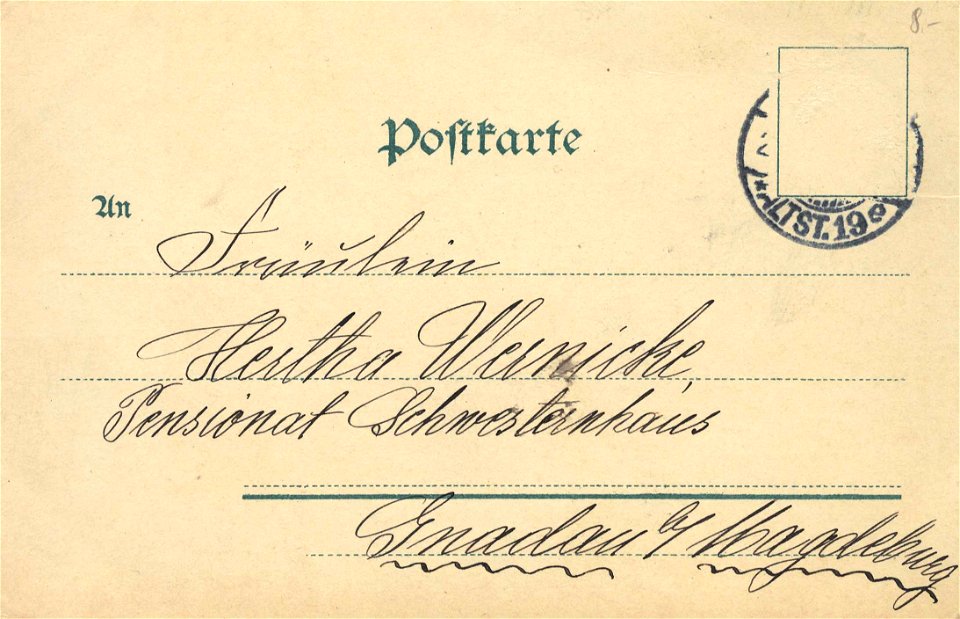 8.-
Postkarte
LTST. 19
An
Fräulein
Hertha Wernicke,
Pensionat Schwesternhaus
Gnadau b/ Magdeburg